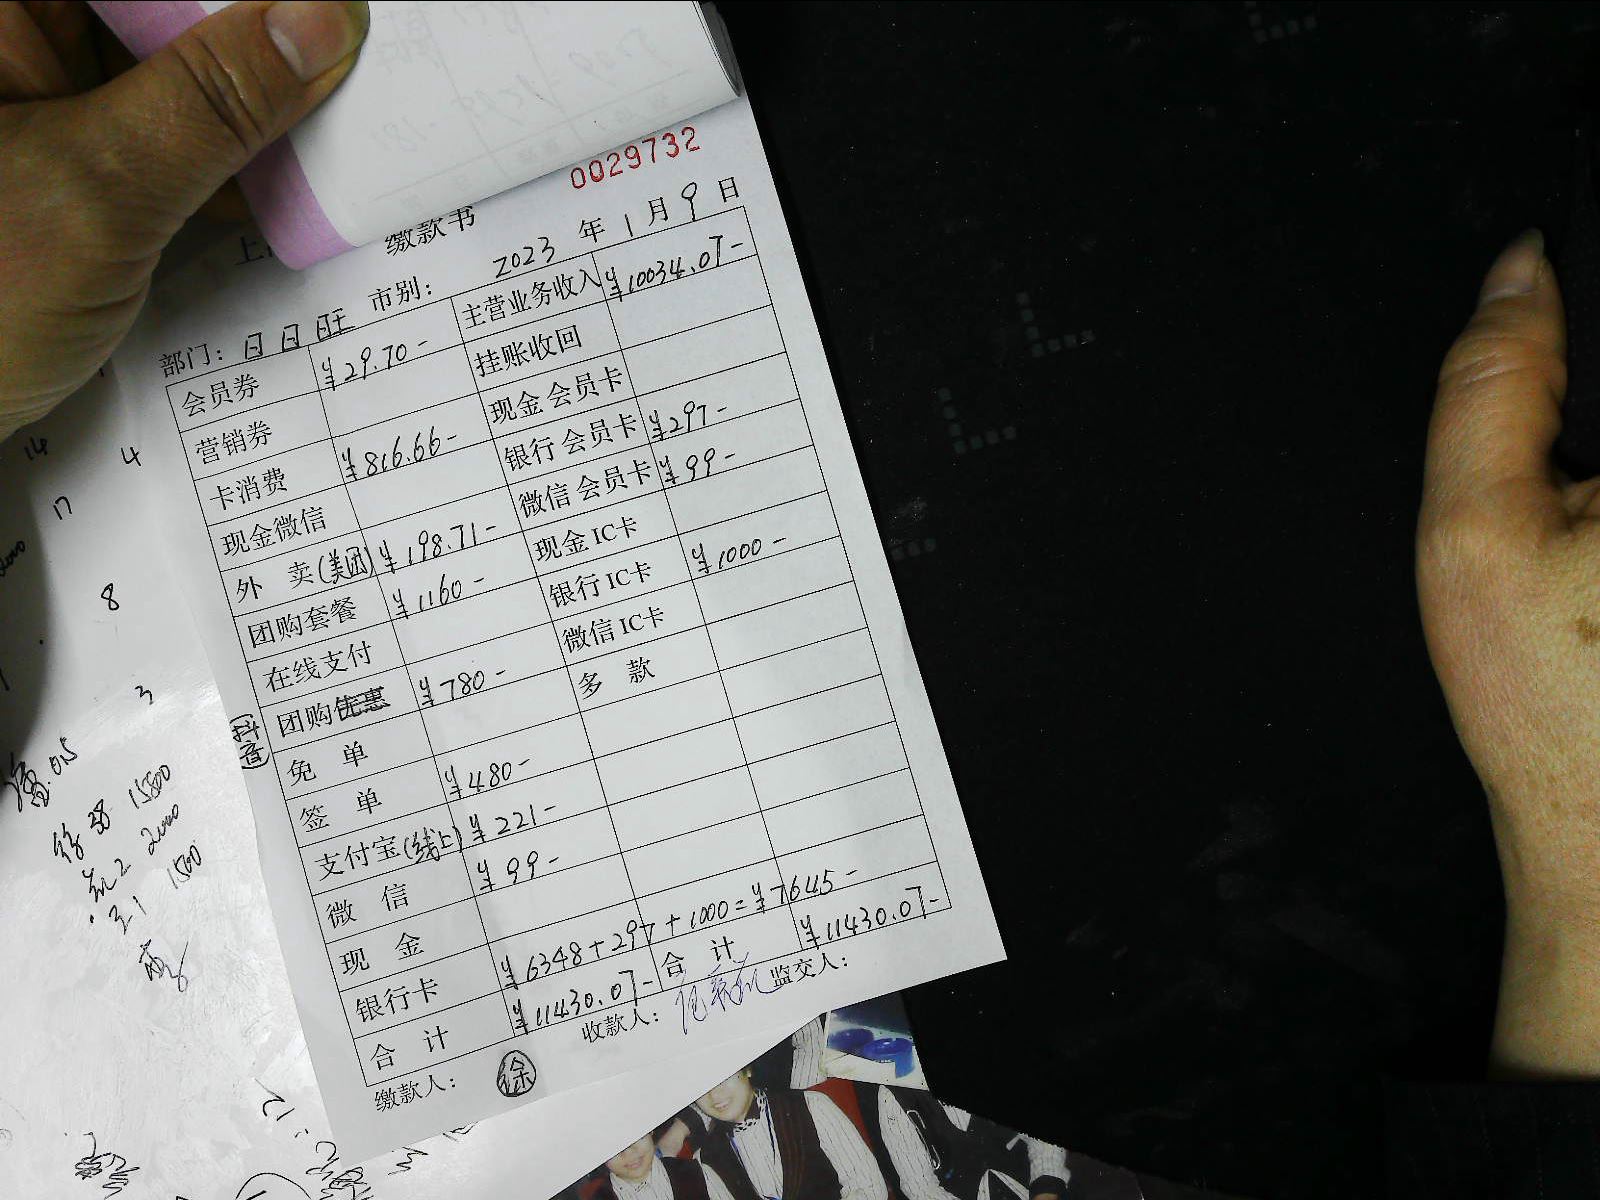 0029732
缴款书
2023 年 1 月 9 日
部门：日日旺 市别：
会员券 ¥29.70- 主营业务收入 ¥10034.07-
营销券 挂账收回
卡消费 ¥816.66- 现金会员卡
现金微信 银行会员卡 ¥297-
外 卖(美团) ¥198.71- 微信会员卡 ¥99-
团购套餐 ¥1160- 现金IC卡
在线支付 银行IC卡 ¥1000-
(抖音) 团购优惠 ¥780- 微信IC卡
免 单 多 款
签 单 ¥480-
支付宝(线上) ¥221-
微 信 ¥99-
现 金
银行卡 ¥6348+297+1000=¥7645-
合 计 ¥11430.07- 合 计 ¥11430.07-
缴款人： 徐 收款人： 监交人：
14
4
17
8
3
15800
2000
1500